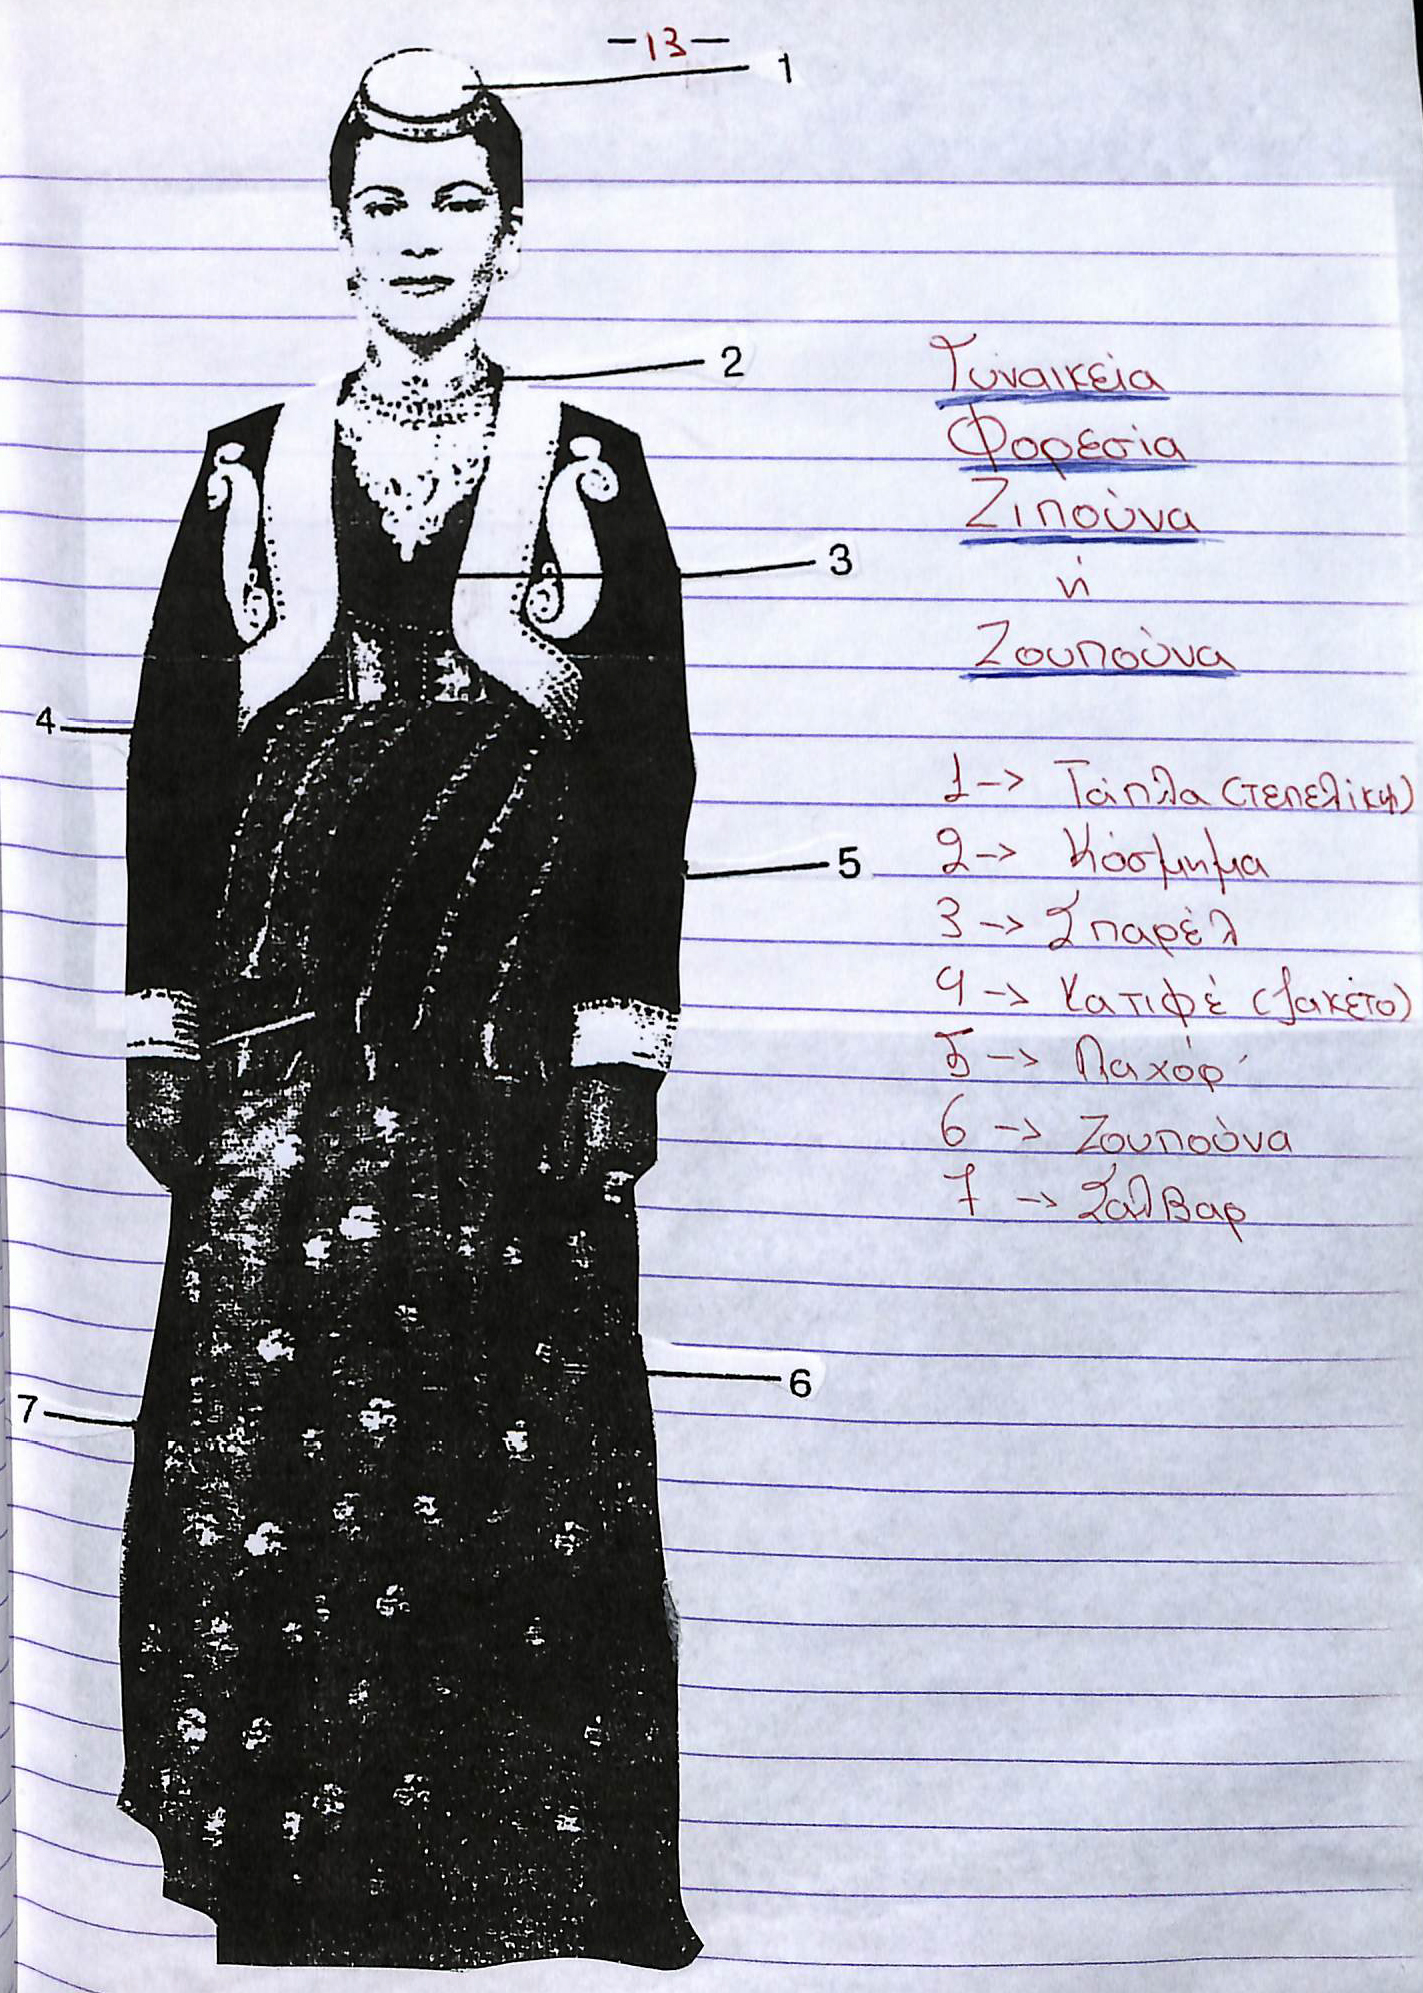 -13-
1
2
3
4
5
6
7
Γυναικεία
Φορεσία
Ζιπούνα
ή
Ζουπούνα
1-> Τάπλα (τεπελίκι)
2-> Κόσμημα
3-> Σπαρέλ
4-> Κατιφέ (ζακέτο)
5-> Λαχόρ
6-> Ζουπούνα
7-> Σαλβαρ